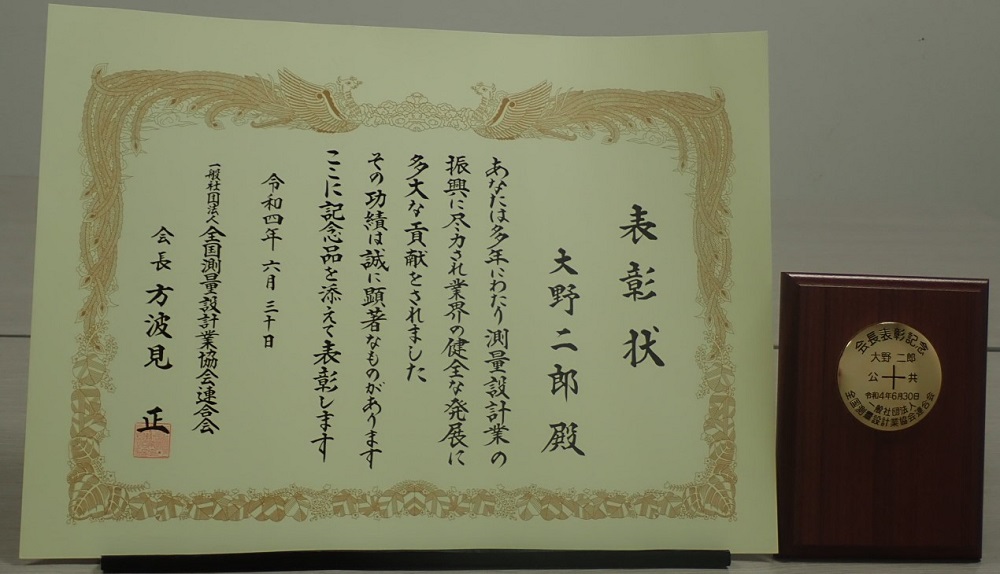 表彰状
大野二郎 殿
あなたは多年にわたり測量設計業の
振興に尽力され業界の健全な発展に
多大な貢献をされました
その功績は誠に顕著なものがあります
ここに記念品を添えて表彰します
令和四年 六月 三十日
一般社団法人 全国測量設計業協会連合会
会長 方波見 正
会長表彰記念
大野 二郎
公 十 共
令和4年6月30日
一般社団法人
全国測量設計業協会連合会